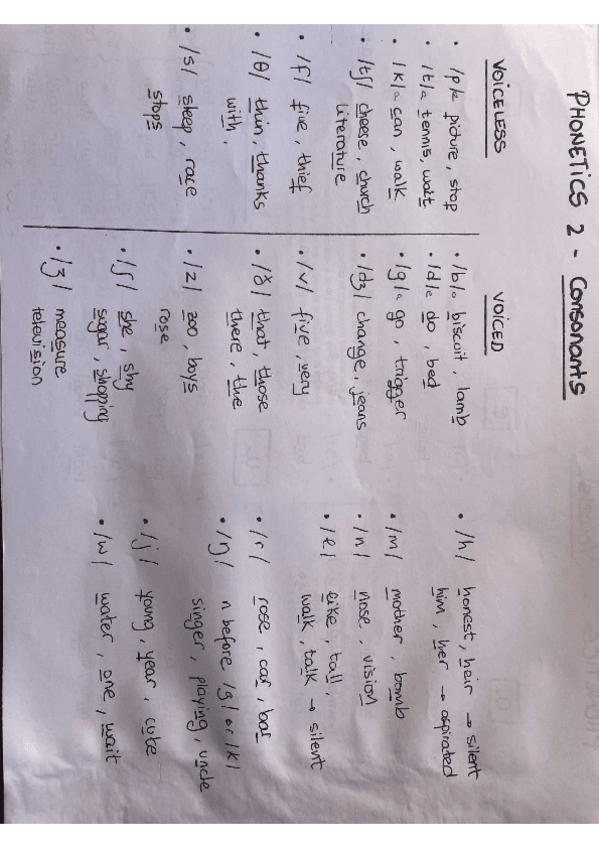 PHONETICS 2 - Consonants
VOICELESS
• /p/ picture, stop
• /t/ tennis, wait
• /k/ can, walk
• /tʃ/ cheese, church
literature
• /f/ five, thief
• /θ/ thin, thanks
with,
• /s/ sleep, race
stops
VOICED
• /b/ biscuit, lamb
• /d/ do, bed
• /g/ go, trigger
• /dʒ/ change, jeans
• /v/ five, very
• /ð/ that, those
there, the
• /z/ zoo, boys
rose
• /ʃ/ she, shy
sugar, shopping
• /ʒ/ measure
television
• /h/ honest, heir → silent
him, her → aspirated
• /m/ mother, bomb
• /n/ nose, vision
• /l/ like, tall,
walk, talk → silent
• /r/ rose, car, bar
• /ŋ/ n before /g/ or /k/
singer, playing, uncle
• /j/ young, year, cute
• /w/ water, one, wait